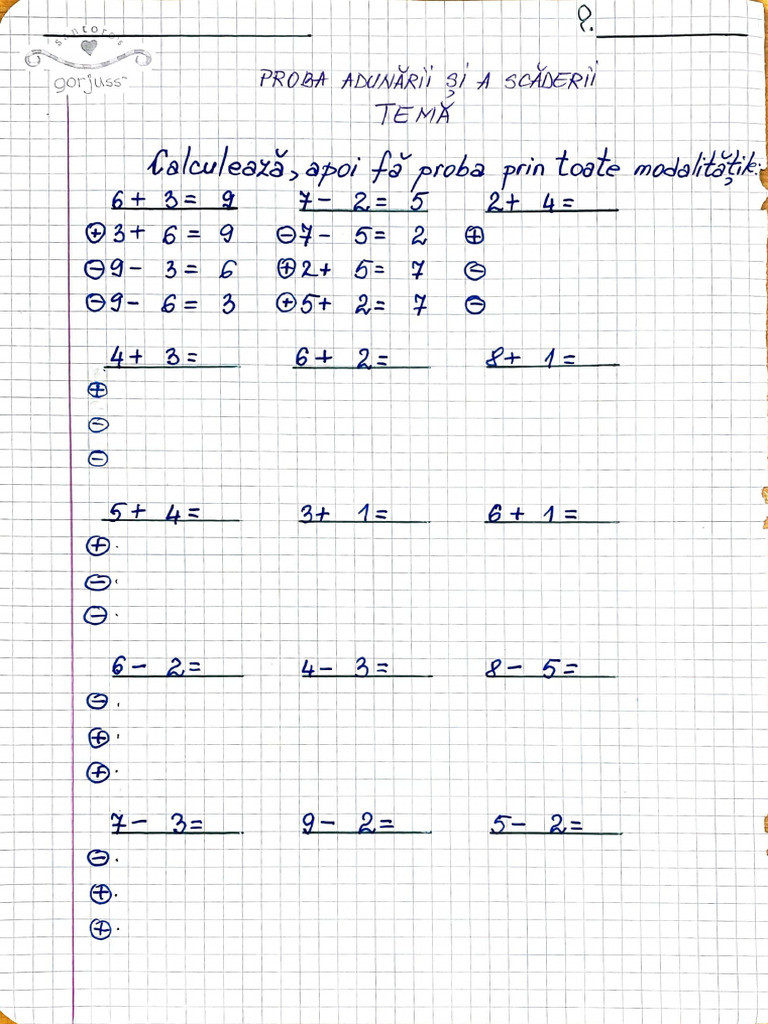 P.
santoro's
gorjuss™
PROBA ADUNĂRII ȘI A SCĂDERII
TEMĂ
Calculează, apoi fă proba prin toate modalitățile:
6 + 3 = 9 7 - 2 = 5 2 + 4 =
⊕ 3 + 6 = 9 ⊖ 7 - 5 = 2 ⊕
⊖ 9 - 3 = 6 ⊕ 2 + 5 = 7 ⊖
⊖ 9 - 6 = 3 ⊕ 5 + 2 = 7 ⊖
4 + 3 = 6 + 2 = 8 + 1 =
⊕
⊖
⊖
5 + 4 = 3 + 1 = 6 + 1 =
⊕ .
⊖ .
⊖ .
6 - 2 = 4 - 3 = 8 - 5 =
⊖ .
⊕ .
⊕ .
7 - 3 = 9 - 2 = 5 - 2 =
⊖ .
⊕ .
⊕ .